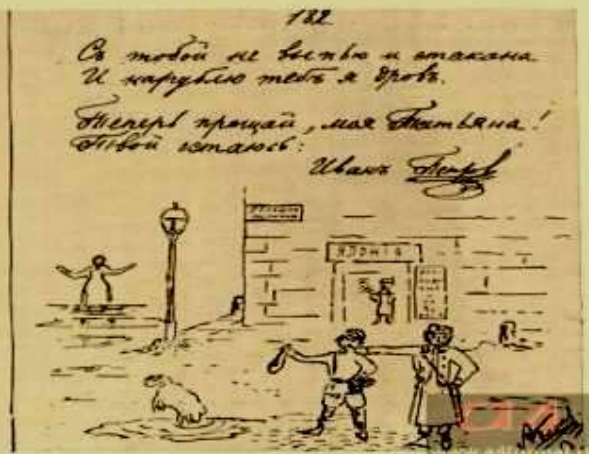 182
Съ тобой не выпью и стакана
И нарублю тебѣ я дровъ.
Теперь прощай, моя Татьяна!
Твой остаюсь:
Иванъ Петров
ЯПОНІЯ